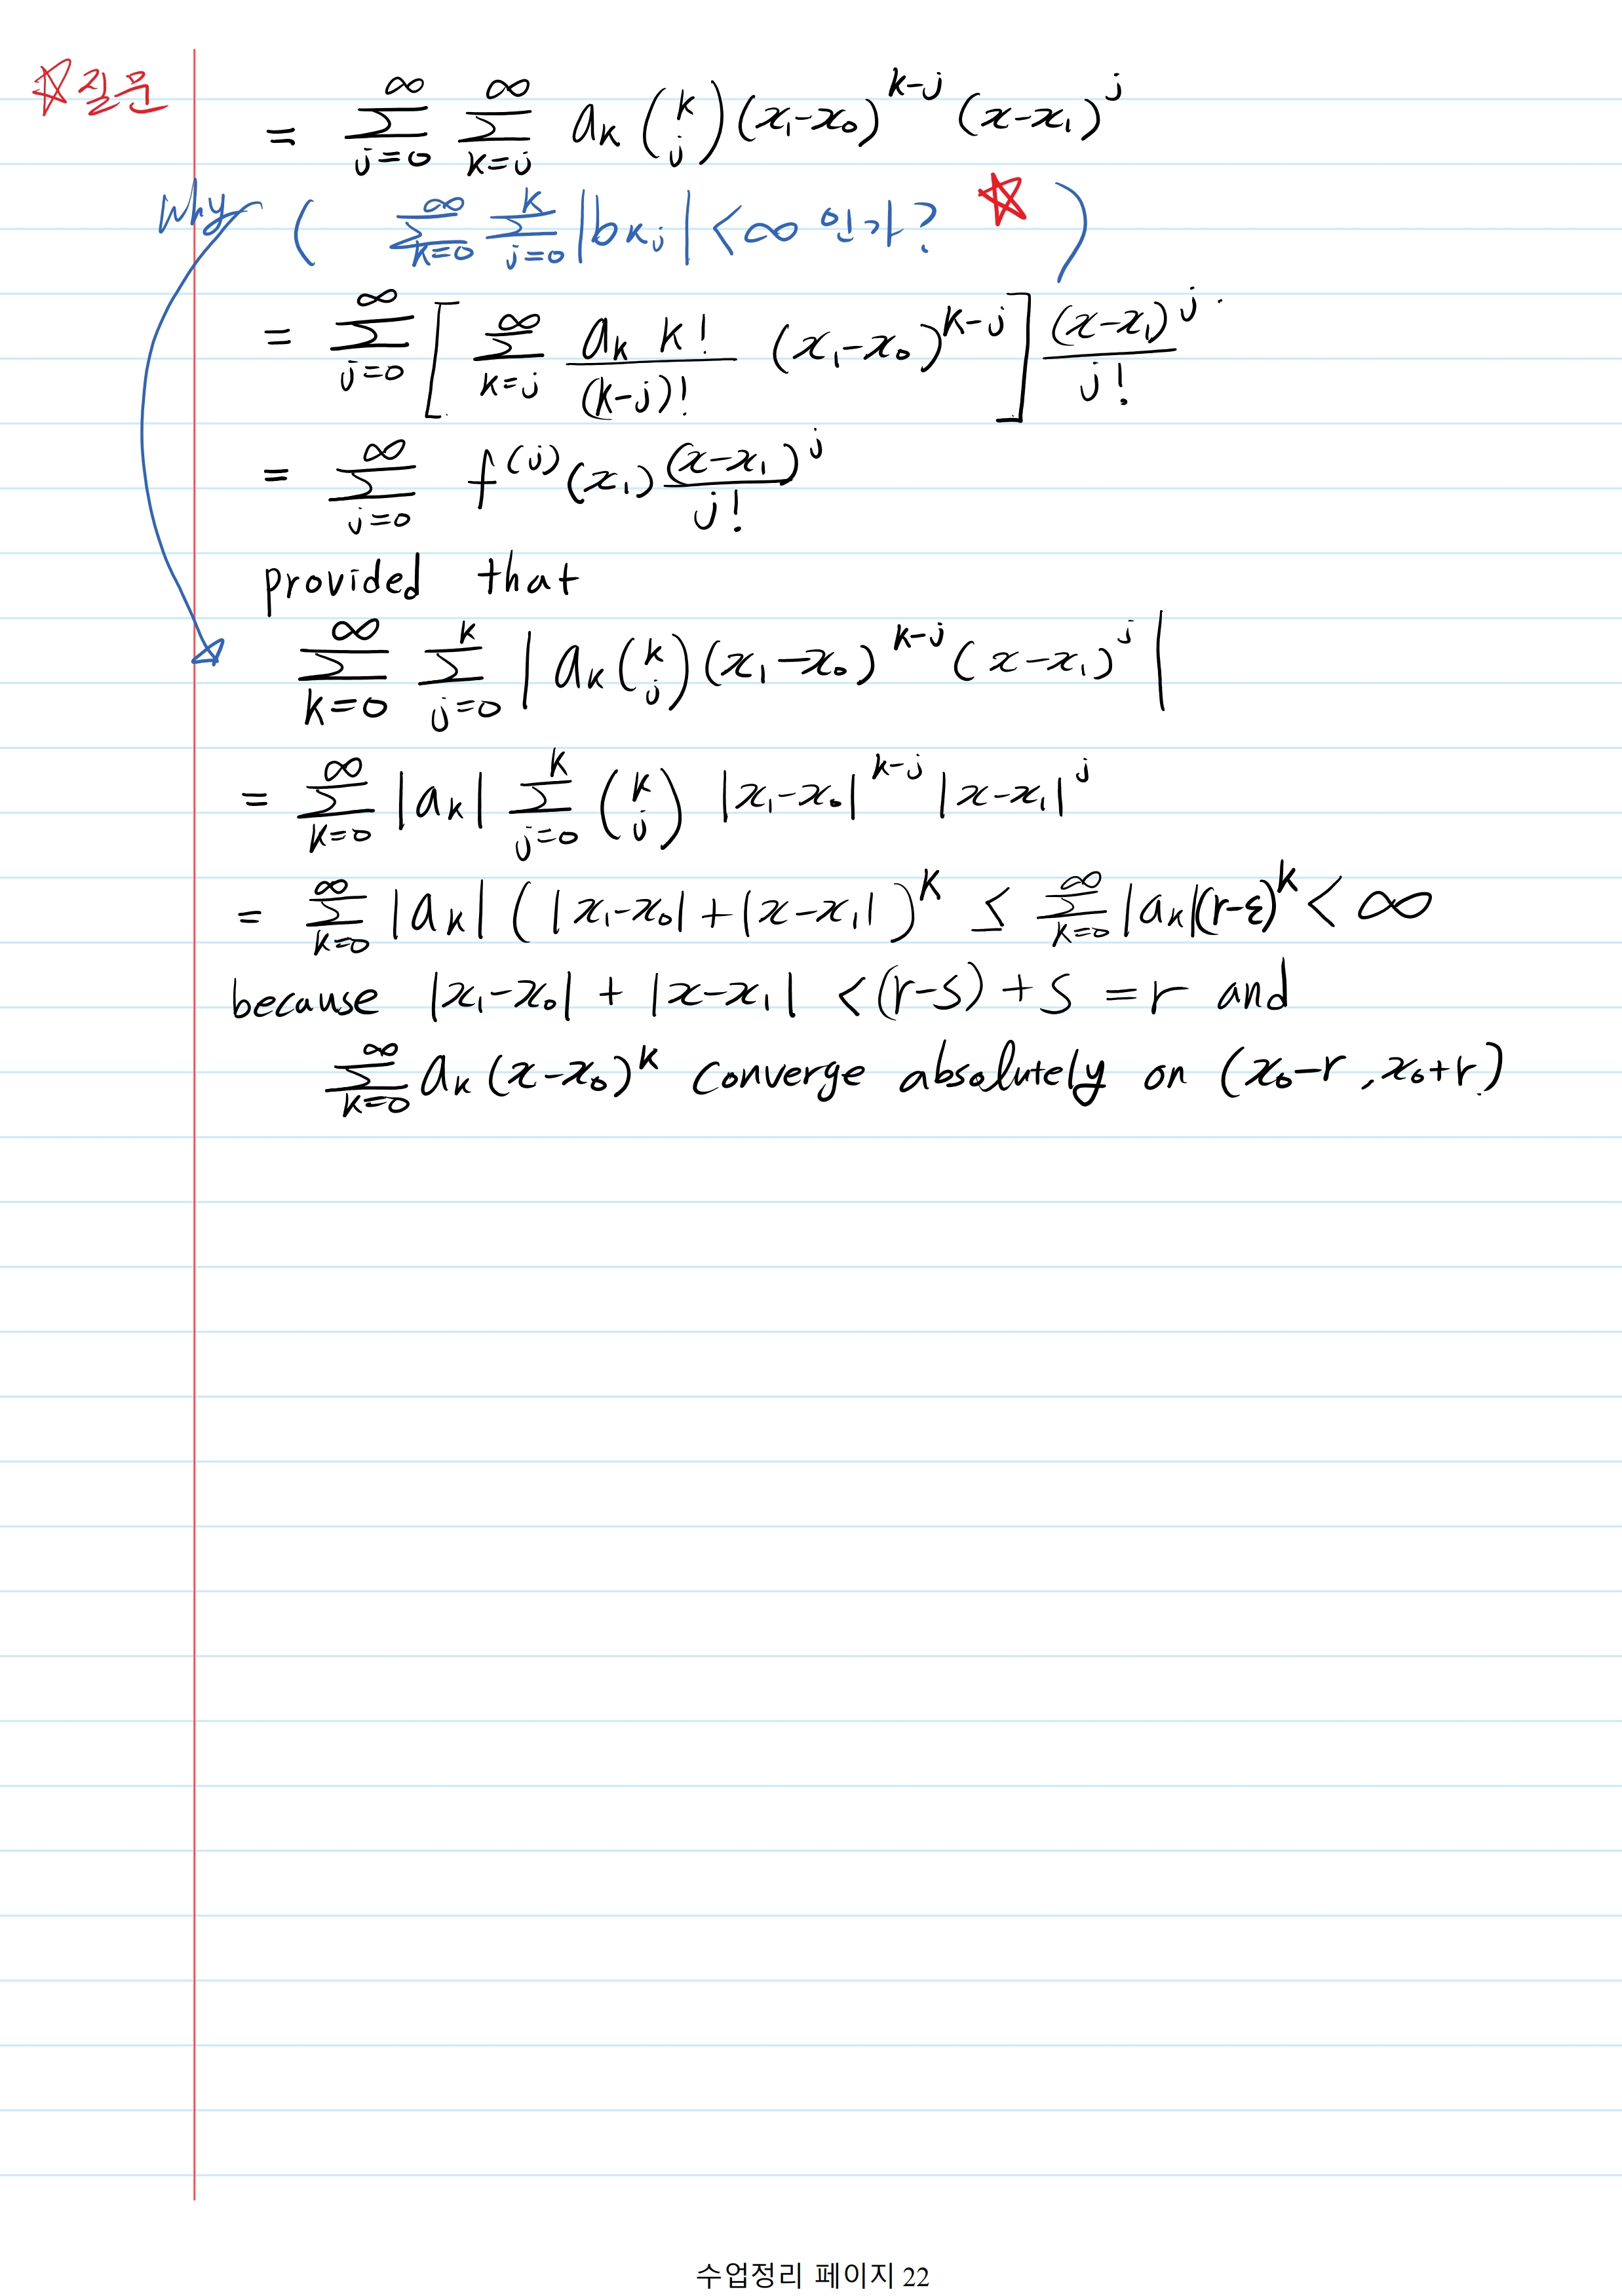 ☆질문
= ∑_{j=0}^{∞} ∑_{k=j}^{∞} a_k (k j) (x₁-x₀)^{k-j} (x-x₁)^j
why ( ∑_{k=0}^{∞} ∑_{j=0}^{k} |b_{kj}| < ∞ 인가? ☆ )
= ∑_{j=0}^{∞} [ ∑_{k=j}^{∞} \frac{a_k k!}{(k-j)!} (x₁-x₀)^{k-j} ] \frac{(x-x₁)^j}{j!}.
= ∑_{j=0}^{∞} f^{(j)}(x₁) \frac{(x-x₁)^j}{j!}
provided that
∑_{k=0}^{∞} ∑_{j=0}^{k} | a_k (k j) (x₁-x₀)^{k-j} (x-x₁)^j |
= ∑_{k=0}^{∞} |a_k| ∑_{j=0}^{k} (k j) |x₁-x₀|^{k-j} |x-x₁|^j
= ∑_{k=0}^{∞} |a_k| ( |x₁-x₀| + |x-x₁| )^k ≤ ∑_{k=0}^{∞} |a_k|(r-ε)^k < ∞
because |x₁-x₀| + |x-x₁| < (r-s) + s = r and
∑_{k=0}^{∞} a_k (x-x₀)^k converge absolutely on (x₀-r, x₀+r)
수업정리 페이지 22